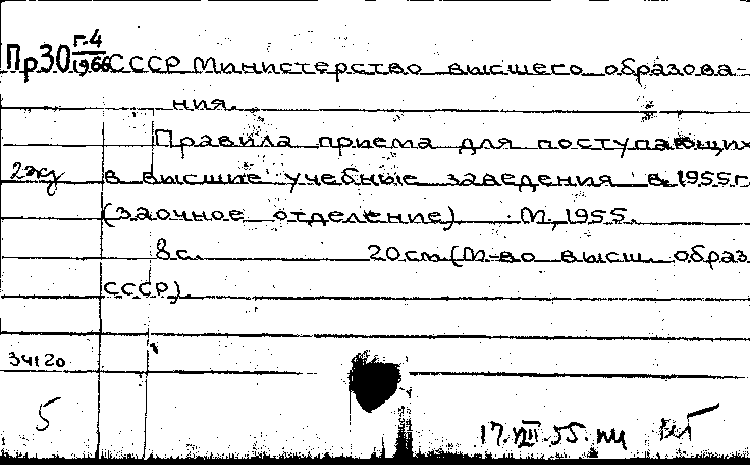 Пр30 г.4
1966 СССР Министерство высшего образова-
ния.
Правила приема для поступающих
2 экз в высшие учебные заведения в 1955 г.
(заочное отделение) . М., 1955.
8 с. 20 см. (М-во высш. образ
СССР).
34120
5
17.VIII.55.